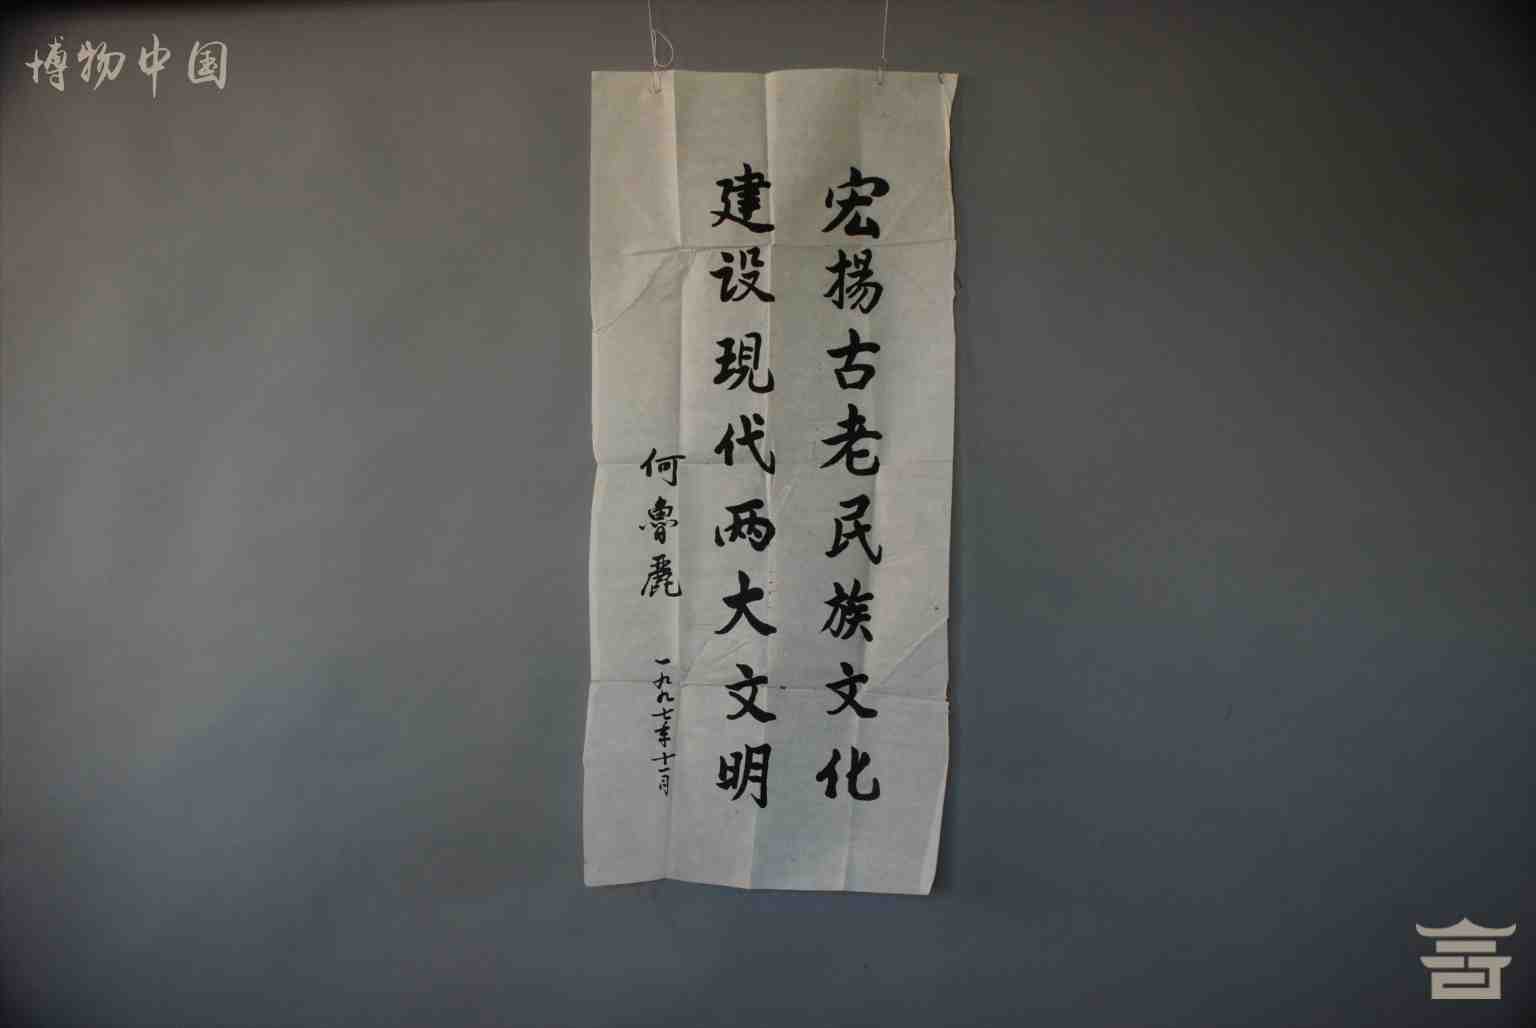 博物中国
宏揚古老民族文化
建设現代两大文明
何魯麗
一九九七年十一月